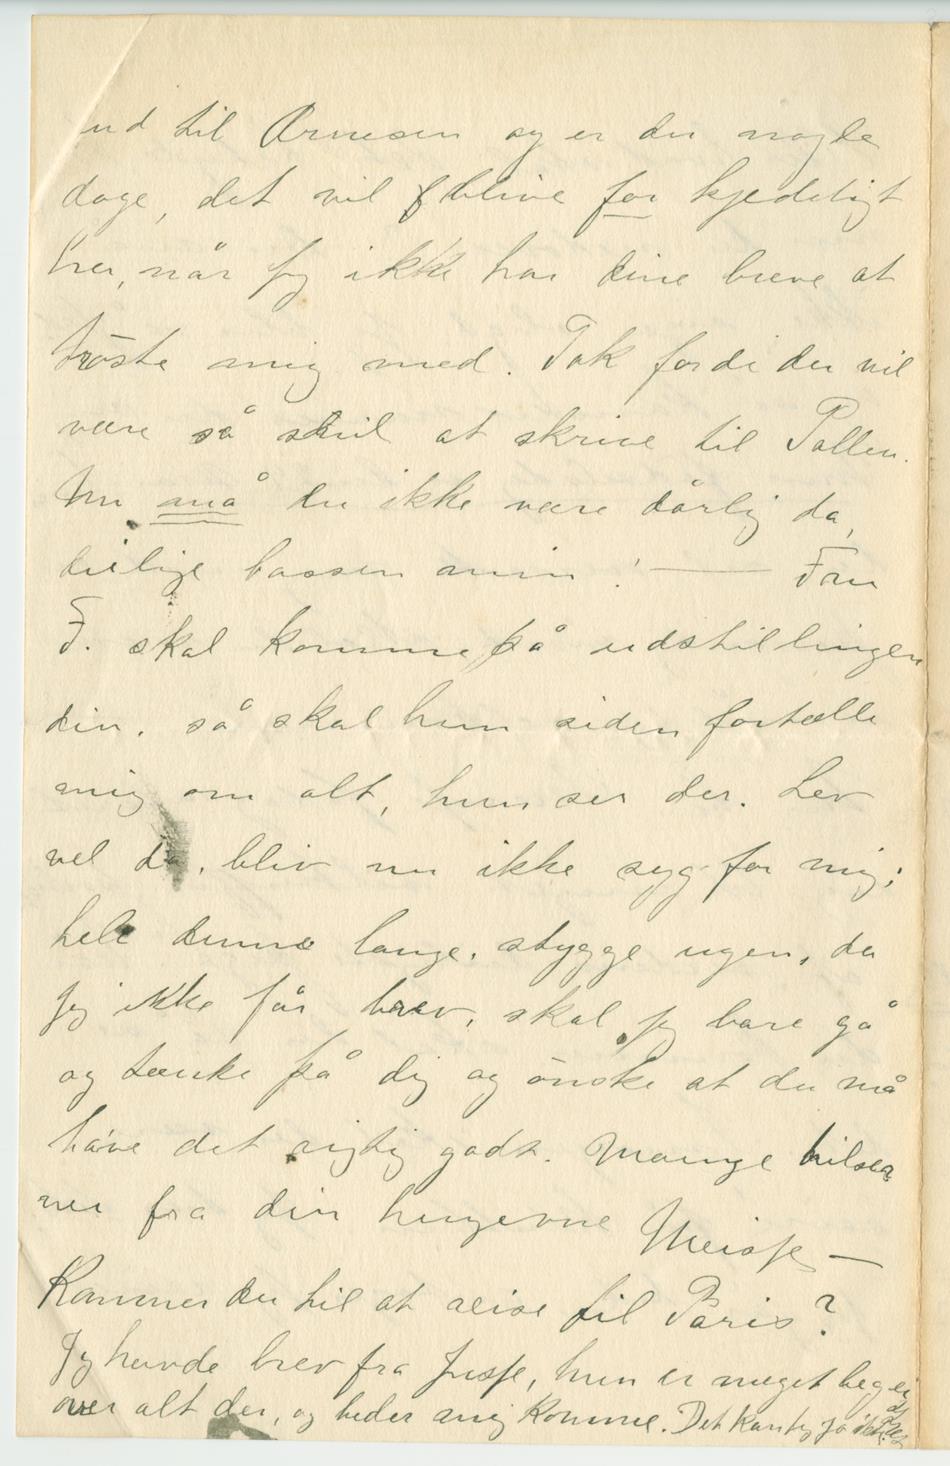 ud til Arnesen og er der nogle
dage, det vil blive for kjedeligt
her, når jeg ikke har dine breve at
trøste mig med. Tak fordi du vil
være så snil at skrive til Pallen.
Nu må du ikke være dårlig da,
deilige bassen min! — Fru
F. skal komme på udstillingen
din, så skal hun siden fortælle
mig om alt, hun ser der. Lev
vel da, bliv nu ikke syg for mig;
hele denne lange, stygge ugen, da
jeg ikke får brev, skal jeg bare gå
og tænke på dig og ønske at du må
have det rigtig godt. Mange hilsen
ner fra din hengivne
Kommer du til at reise til Paris?
Jeg havde brev fra Jusse, hun er meget
over alt der, og beder mig komme. Det kan jeg jo